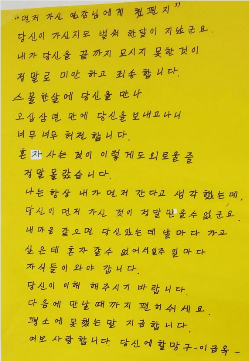 "먼저 가신 영감님에게 쓴편지"
당신이 가신지도 벌써 한달이 지났군요.
내가 당신을 끝까지 모시지 못한것이
정말로 미안 하고 죄송 합니다.
스물한살에 당신을 만나
오십삼년 만에 당신을 보내고나니
너무너무 허전 합니다.
혼자 사는 것이 이렇게도 외로울 줄
정말 몰랐습니다.
나는 항상 내가 먼저 간다고 생각 했는데,
당신이 먼저 가신 것이 정말 믿을수 없군요.
내마음 같으면 당신있는데 날마다 가고
싶은데 혼자 갈수 없어서 일주일 마다
자식들이 와야 갑니다.
당신이 이해 해주시기 바랍니다.
다음에 만날 때까지 편히쉬세요.
평소에 못했는 말 지금합니다.
여보 사랑합니다 당신에 할망구-이금옥-